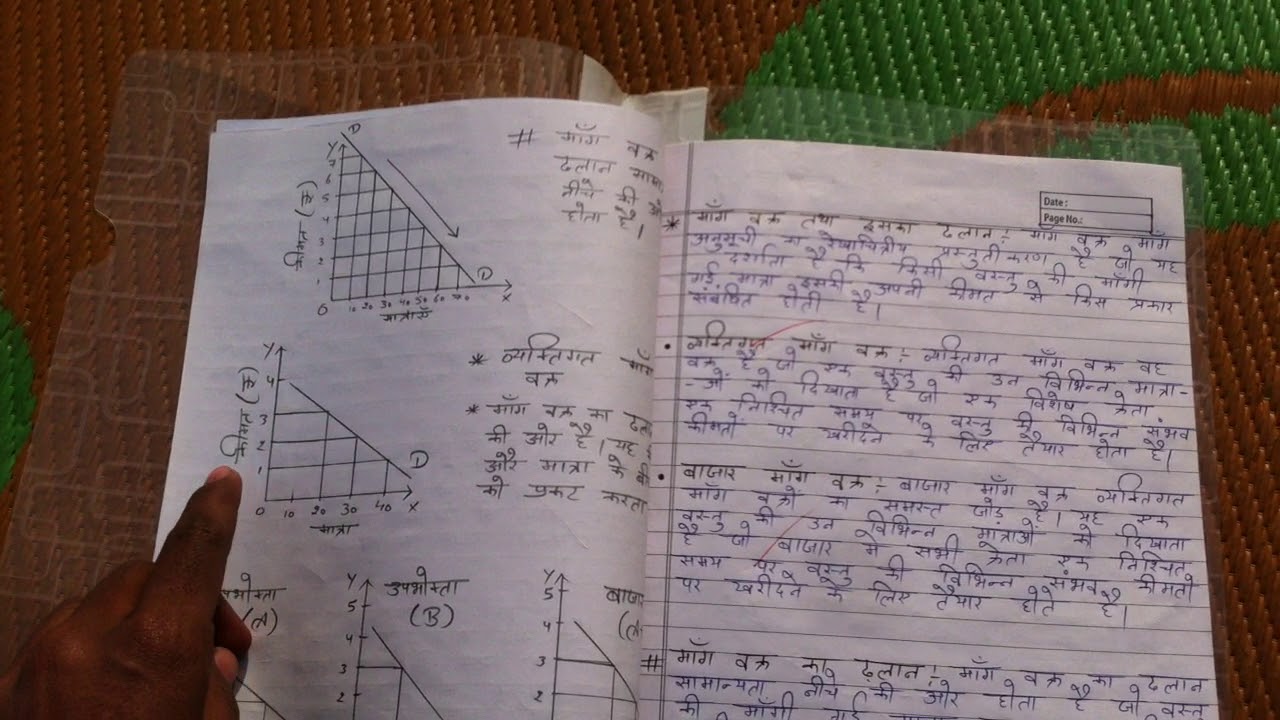 D
Y
7
6
5
4
3
2
1
0
कीमत (रू)
10 20 30 40 50 60 70
X
D
मात्राएँ
# माँग वक्र
ढलान
नीचे की ओ
होता है।
Y
4
3
2
1
0
कीमत (रू)
10 20 30 40 X
D
मात्रा
* व्यक्तिगत माँग
वक्र
* माँग वक्र का ढला
की ओर है। यह
और मात्रा के बी
को प्रकट करता
Y
5
4
3
2
उपभोक्ता
(B)
Y
5
4
3
2
Date:
Page No.:
* माँग वक्र तथा इसका ढलान : माँग वक्र माँग
अनुसूची का रेखाचित्रीय प्रस्तुतीकरण है जो यह
दर्शाता है कि किसी वस्तु की माँगी
गई मात्रा इसकी अपनी कीमत से किस प्रकार
संबंधित होती है।
• व्यक्तिगत माँग वक्र : व्यक्तिगत माँग वक्र वह
वक्र है जो एक वस्तु की उन विभिन्न मात्रा-
-ओं को दिखाता है जो एक विशेष क्रेता
एक निश्चित समय पर वस्तु की विभिन्न संभव
कीमतों पर खरीदने के लिए तैयार होता है।
• बाजार माँग वक्र : बाजार माँग वक्र व्यक्तिगत
माँग वक्रों का समस्त जोड़ है। यह एक
वस्तु की उन विभिन्न मात्राओं को दिखाता
है जो बाजार में सभी क्रेता एक निश्चित
समय पर वस्तु की विभिन्न संभव कीमतों
पर खरीदने के लिए तैयार होते है।
# माँग वक्र का ढलान : माँग वक्र का ढलान
सामान्यता नीचे की ओर होता है जो वस्तु
की माँगी गई